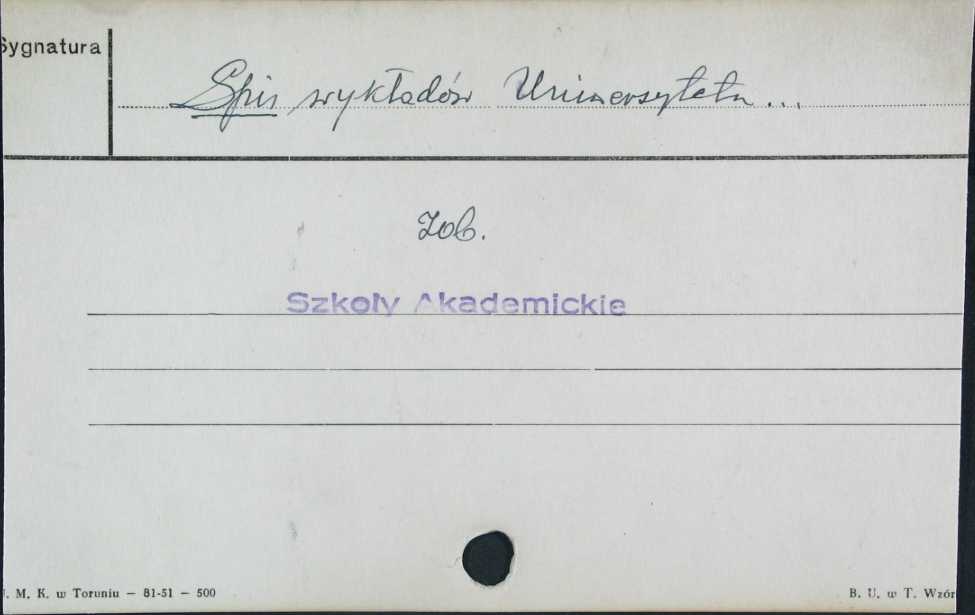 Sygnatura
Spis wykładów Uniwersytetu...
Zob.
Szkoły Akademickie
. M. K. w Toruniu — 81-51 — 500
B. U. w T. Wzór